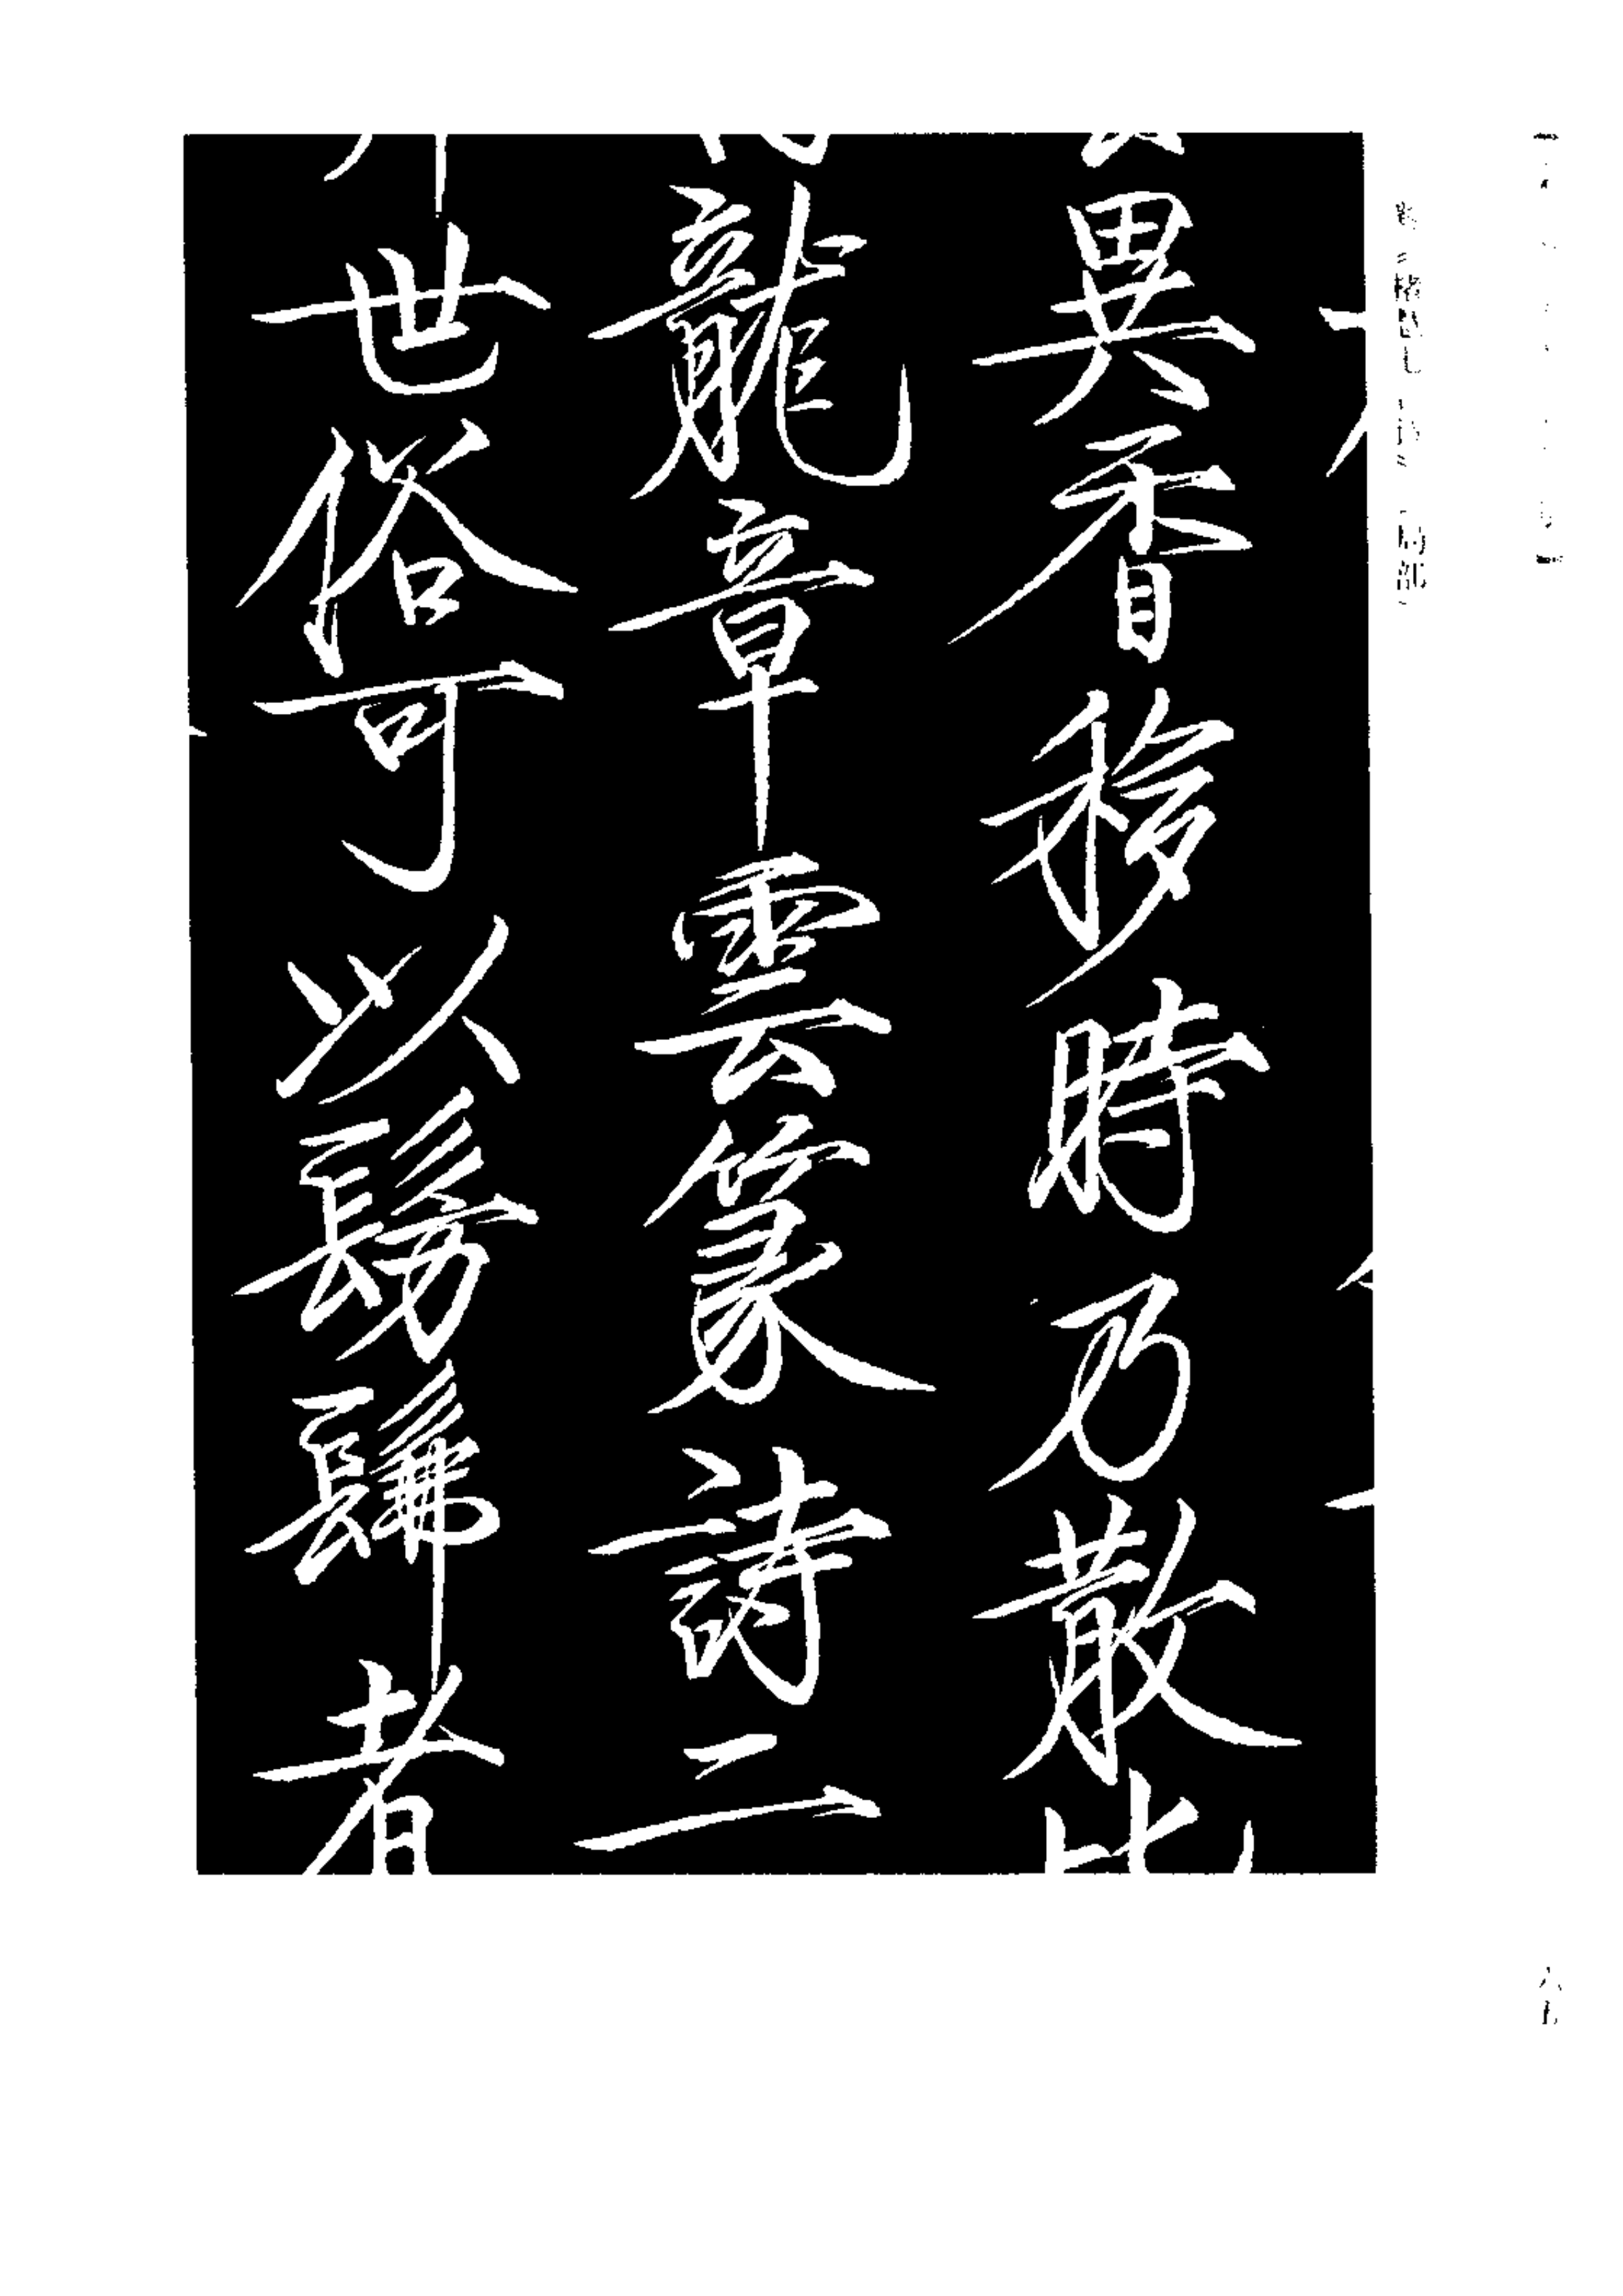 異香移時乃散
龍章雲篆詩二
世俗可以髣髴者
局部